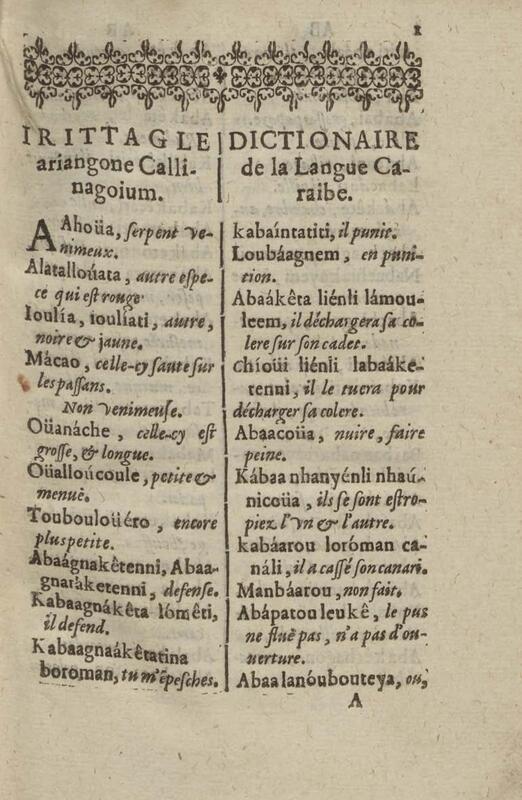 1
IRITTAGLE
ariangone Calli-
nagoium.
AAhoüa, serpent ve-
nimeux.
Alatalloüata, autre espe-
ce qui est rouge
Ioulía, ioulíati, autre,
noire & jaune.
Mácao, celle-cy saute sur
les passans.
Non venimeuse.
Oüanáche, celle-cy est
grosse, & longue.
Oüalloúcoule, petite &
menuë.
Toubouloüéro, encore
plus petite.
Abaágnakêtenni, Abaa-
gnaráketenni, defense.
Kabaagnákêta lómêti,
il defend.
Kabaagnaákêtatina
boroman, tu m'ẽpesches.
DICTIONAIRE
de la Langue Ca-
raibe.
kabaíntatiti, il punit.
Loubáagnem, en puni-
tion.
Abaákêta liénli lámou-
leem, il déchargera sa co-
lere sur son cadet.
chíoüi liénli labaáke-
tenni, il le tuera pour
décharger sa colere.
Abaacoüa, nuire, faire
peine.
Kábaa nhanyénli nhaú-
nicoüa, ils se sont estro-
piez l'vn & l'autre.
kabáarou loróman ca-
náli, il a cassé son canari.
Manbáarou, non fait.
Abápatou leukê, le pus
ne fluë pas, n'a pas d'ou-
verture.
Abaa lanóubouteya, ou,
A